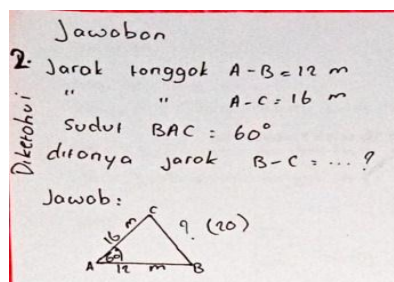 Jawaban
2. Jarak tonggak A-B = 12 m
" " A-C = 16 m
Sudut BAC = 60°
ditanya jarak B-C = ... ?
Diketahui
Jawab :
C
16 m ? (20)
60°
A 12 m B